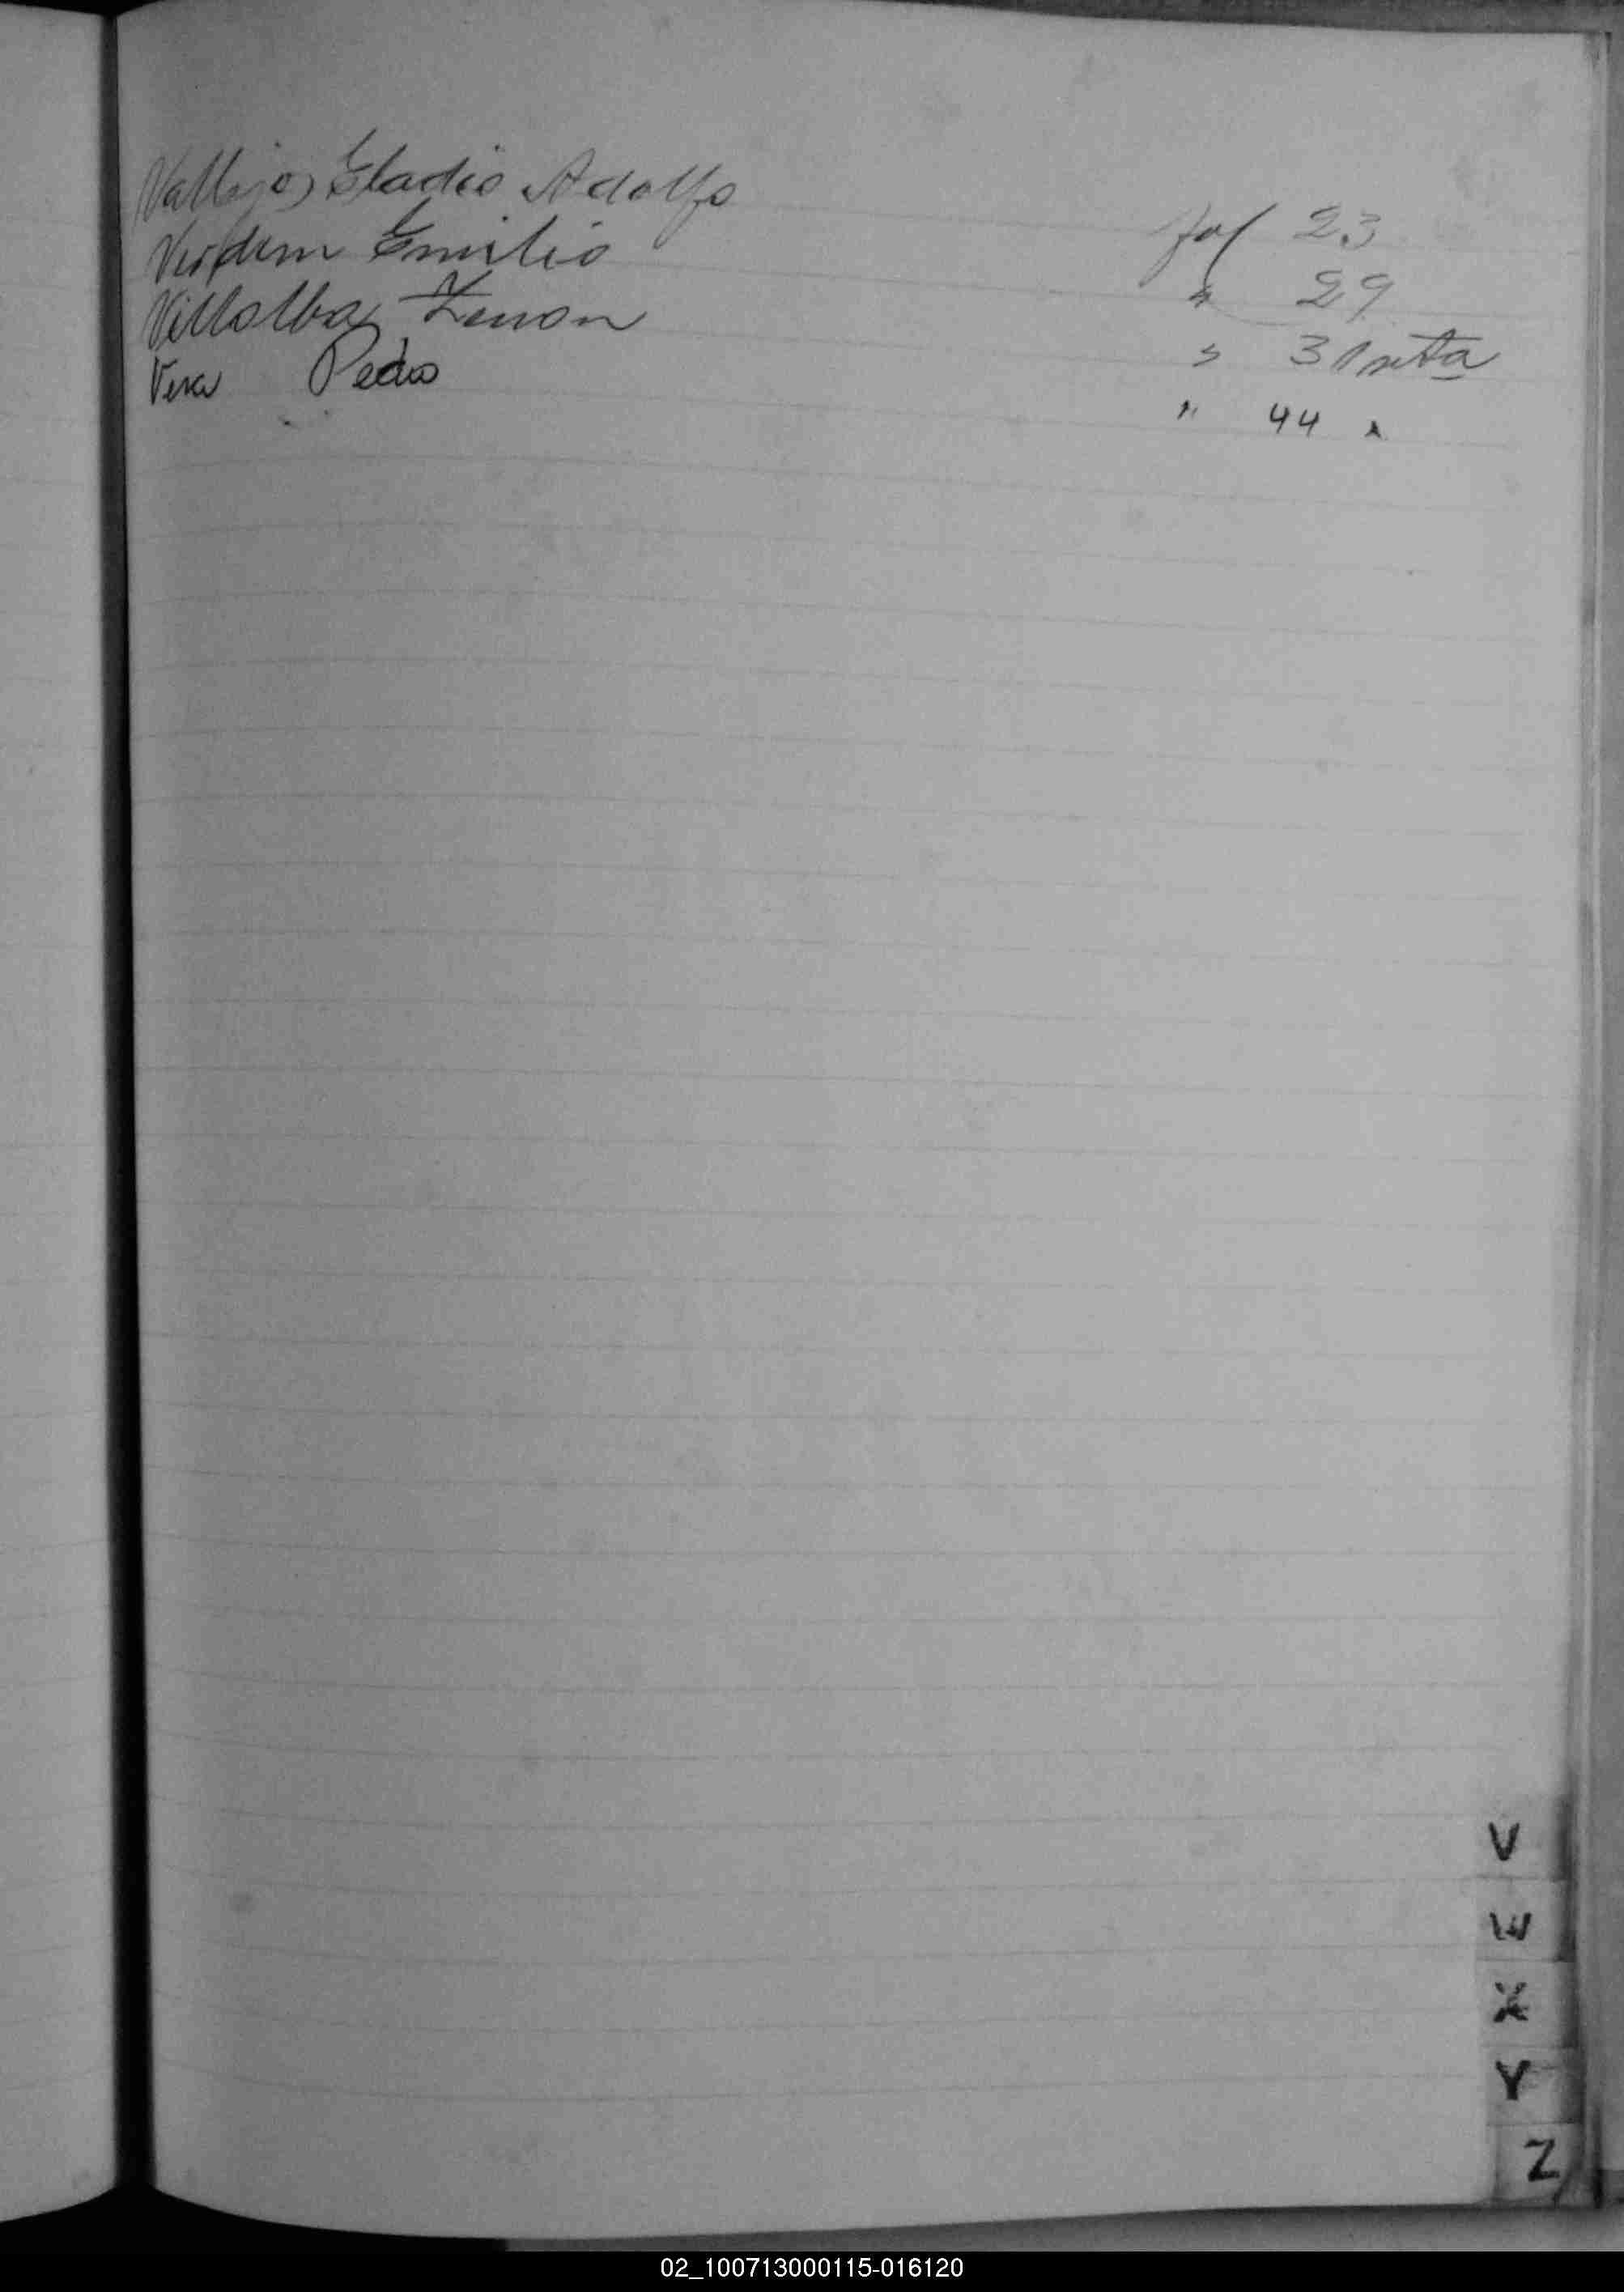 Vallejo, Eladio Adolfo fol 23
Verdun Emilio " 29
Villalba, Zenon " 31
Vera Pedro " 44 "
V
W
X
Y
Z
02_100713000115-016120